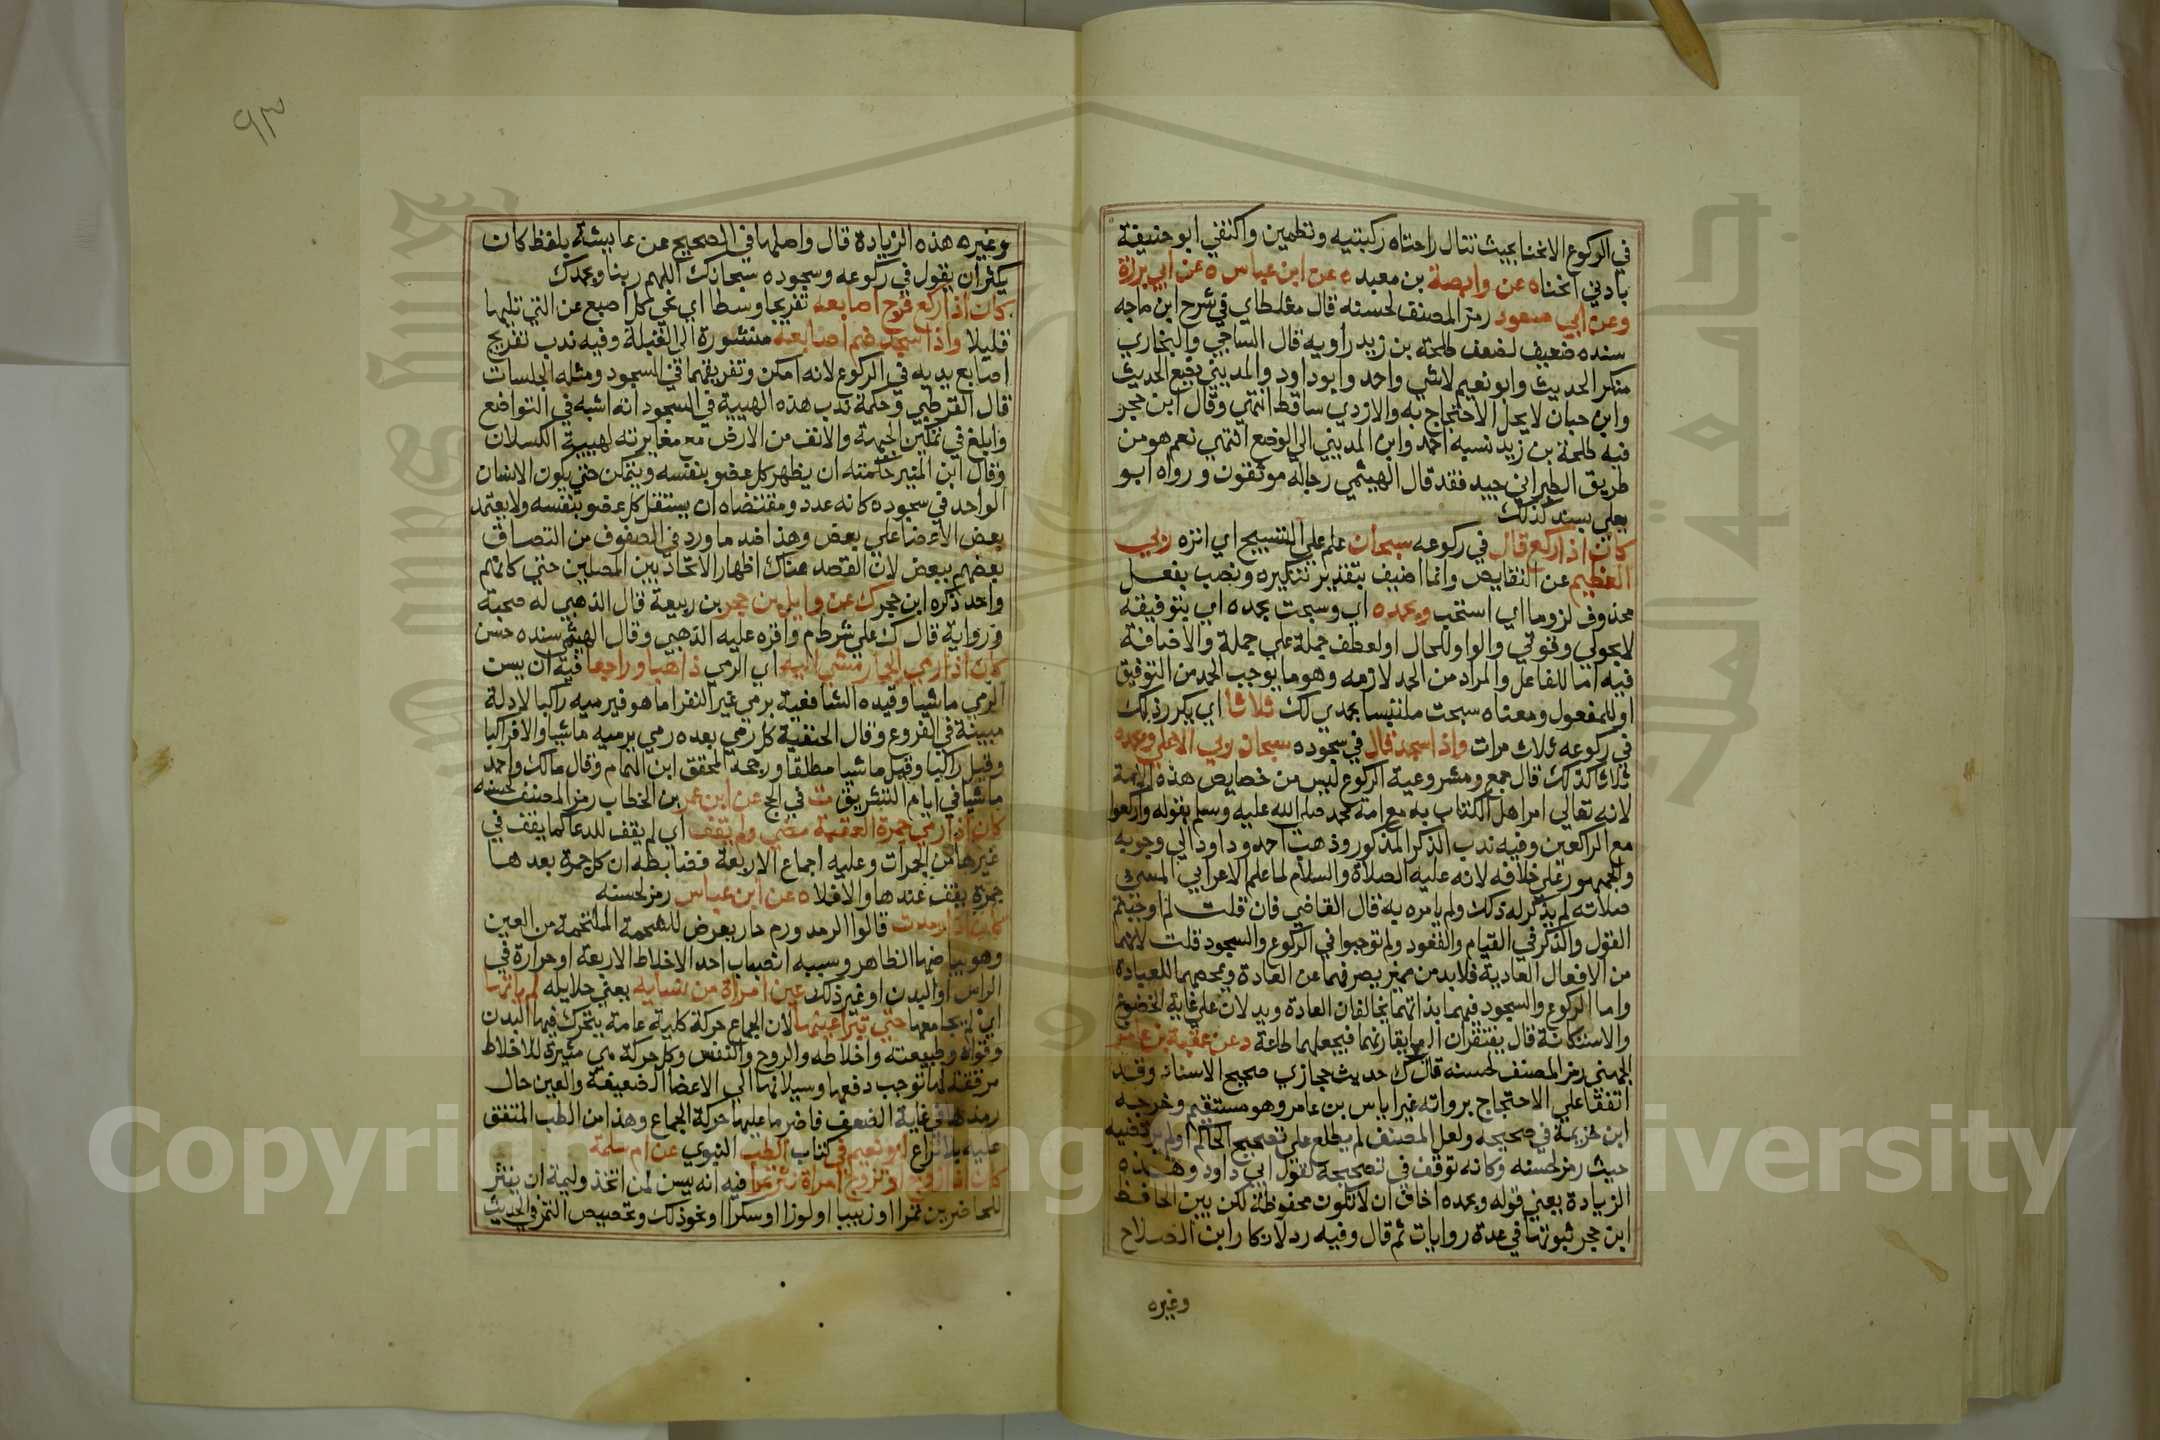 في الركوع الانحنا بحيث تنال راحتاه ركبتيه وتطمين واكتفي ابو حنيفة
بادني انحناه عن وابصة بن معبد ه عن ابن عباس ه عن ابي برزة
وعن ابي مسعود رمز المصنف لحسنه قال مغلطاي في شرح ابن ماجه
سنده ضعيف لضعف طلحة بن زيد راويه قال الساجي والبخاري
منكر الحديث وابو نعيم لاشي واحمد وابو داود والمديني يضع الحديث
وابن حبان لا يحل الاحتجاج به والازدي ساقط انتهي وقال ابن حجر
فيه طلحة بن زيد نسبه احمد وابن المديني الي الوضع انتهي نعم هو من
طريق الطبراني جيد فقد قال الهيثمي رجاله موثقون ورواه ابو
يعلي بسند كذلك
كان اذا ركع قال في ركوعه سبحان علم علي التسبيح اي انزه ربي
العظيم عن النقايص وانما اضيف بتقدير تنكيره ونصب بفعل
محذوف لزوما اي استحب وبحمده اي وسبحت بحمده اي بتوفيقه
لا بحولي وقوتي والواو للحال او لعطف جملة علي جملة والاضافة
فيه اما للفاعل والمراد من الحمد لازمه وهو ما يوجب الحمد من التوفيق
او للمفعول ومعناه سبحت ملتبسا بحمدي لك ثلاثا اي يكرر ذلك
في ركوعه ثلاث مرات واذا سجد قال في سجوده سبحان ربي الاعلي وبحمده
ثلاثا كذلك قال جمع ومشروعية الركوع ليس من خصايص هذه الامة
لانه تعالي امر اهل الكتاب به مع امة محمد صلى الله عليه وسلم بقوله واركعوا
مع الراكعين وفيه ندب الذكر المذكور وذهب احمد وداود الي وجوبه
والجمهور علي خلافه لانه عليه الصلاة والسلام لما علم الاعرابي المسئ
صلاته لم يذكر له ذلك ولم يامره به قال القاضي فان قلت لم اوجبتم
القول والذكر في القيام والقعود ولم توجبوا في الركوع والسجود قلت لانهما
من الافعال العادية فلا بد من مميز يصرفهما عن العادة ويمحضهما للعبادة
واما الركوع والسجود فهما بذاتهما يخالفان العادة ويدلان علي غاية الخضوع
والاستكانة قال يفتقران الي ما يقارنهما فيجعلهما طاعة د عن عقبة بن عامر
الجهني رمز المصنف لحسنه قال ك حديث حجازي صحيح الاسناد وقد
اتفقا علي الاحتجاج برواته غير اياس بن عامر وهو مستقيم وخرجه
ابن خزيمة في صحيحه ولعل المصنف لم يطلع علي تصحيح الحاكم او لم يرتضيه
حيث رمز لحسنه وكانه توقف في تصحيحه لقول ابي داود وهذه
الزيادة يعني قوله وبحمده اخاف ان لا تكون محفوظة لكن بين الحافظ
ابن حجر ثبوتها في عدة روايات ثم قال وفيه رد لانكار ابن الصلاح
وغيره
٩٣
وغيره هذه الزيادة قال واصلها في الصحيح عن عايشة بلفظ كان
يكثر ان يقول في ركوعه وسجوده سبحانك اللهم ربنا وبحمدك
كان اذا ركع فرج اصابعه تفريجا وسطا اي نحي كل اصبع عن التي تليها
قليلا واذا سجد ضم اصابعه منشورة الي القبلة وفيه ندب تفريج
اصابع يديه في الركوع لانه امكن وتفريقهما في السجود ومثله الجلسات
قال القرطبي وحكمة ندب هذه الهيية في السجود انه اشبه في التواضع
وابلغ في تمكين الجبهة والانف من الارض مع مغايرته لهيية الكسلان
وقال ابن المنير حكمته ان يظهر كل عضو بنفسه ويتمكن حتي يكون الانسان
الواحد في سجوده كانه عدد ومقتضاه ان يستقل كل عضو بنفسه ولا يعتمد
بعض الاعضا علي بعض وهذا ضد ما ورد في الصفوف من التصاق
بعضهم ببعض لان القصد هناك اظهار الاتحاد بين المصلين حتي كانهم
واحد ذكره ابن حجر ك عن وايل بن حجر بن ربيعة قال الذهبي له صحبة
ورواية قال ك علي شرط م واقره عليه الذهبي وقال الهيثمي سنده حسن
كان اذا رمي الجمار مشي اليه اي الرمي ذاهبا وراجعا فيه ان يسن
الرمي ماشيا وقيده الشافعية برمي غير النفر اما هو فيرميه راكبا لادلة
مبينة في الفروع وقال الحنفية كل رمي بعده رمي يرميه ماشيا والا فراكبا
وقيل راكبا وقيل ماشيا مطلقا ورجحه المحقق ابن الهمام وقال مالك واحمد
ماشيا في ايام التشريق ت في الحج عن ابن عمر بن الخطاب رمز المصنف لحسنه
كان اذا رمي جمرة العقبة مضي ولم يقف اي لم يقف للدعا كما يقف في
غيرها من الجمرات وعليه اجماع الاربعة فضابطه ان كل جمرة بعدها
جمرة يقف عندها والا فلا ه عن ابن عباس رمز لحسنه
كان اذا رمدت قالوا الرمد ورم حار يعرض للشحمة الملتحمة من العين
وهو بياضها الظاهر وسببه انصباب احد الاخلاط الاربعة او حرارة في
الراس او البدن او غير ذلك عين امراة من نسايه يعني حلايله لم ياتها
اي لم يجامعها حتي تبرا عينها لان الجماع حركة كلية عامة يتحرك فيها البدن
وقواه وطبيعته واخلاطه والروح والنفس وكل حركة هي مثيرة للاخلاط
مرققة لها توجب دفعها وسيلانها الي الاعضا الضعيفة والعين حال
رمدها في غاية الضعف فاضر ما عليها حركة الجماع وهذا من الطب المتفق
عليه بلا نزاع ابو نعيم في كتاب الطب النبوي عن ام سلمة
كان اذا زوج او تزوج امراة نثر تمرا فيه انه يسن لمن اتخذ وليمة ان ينثر
للحاضرين تمرا او زبيبا او لوزا او سكرا او نحو ذلك وتخصيص التمر في الحديث